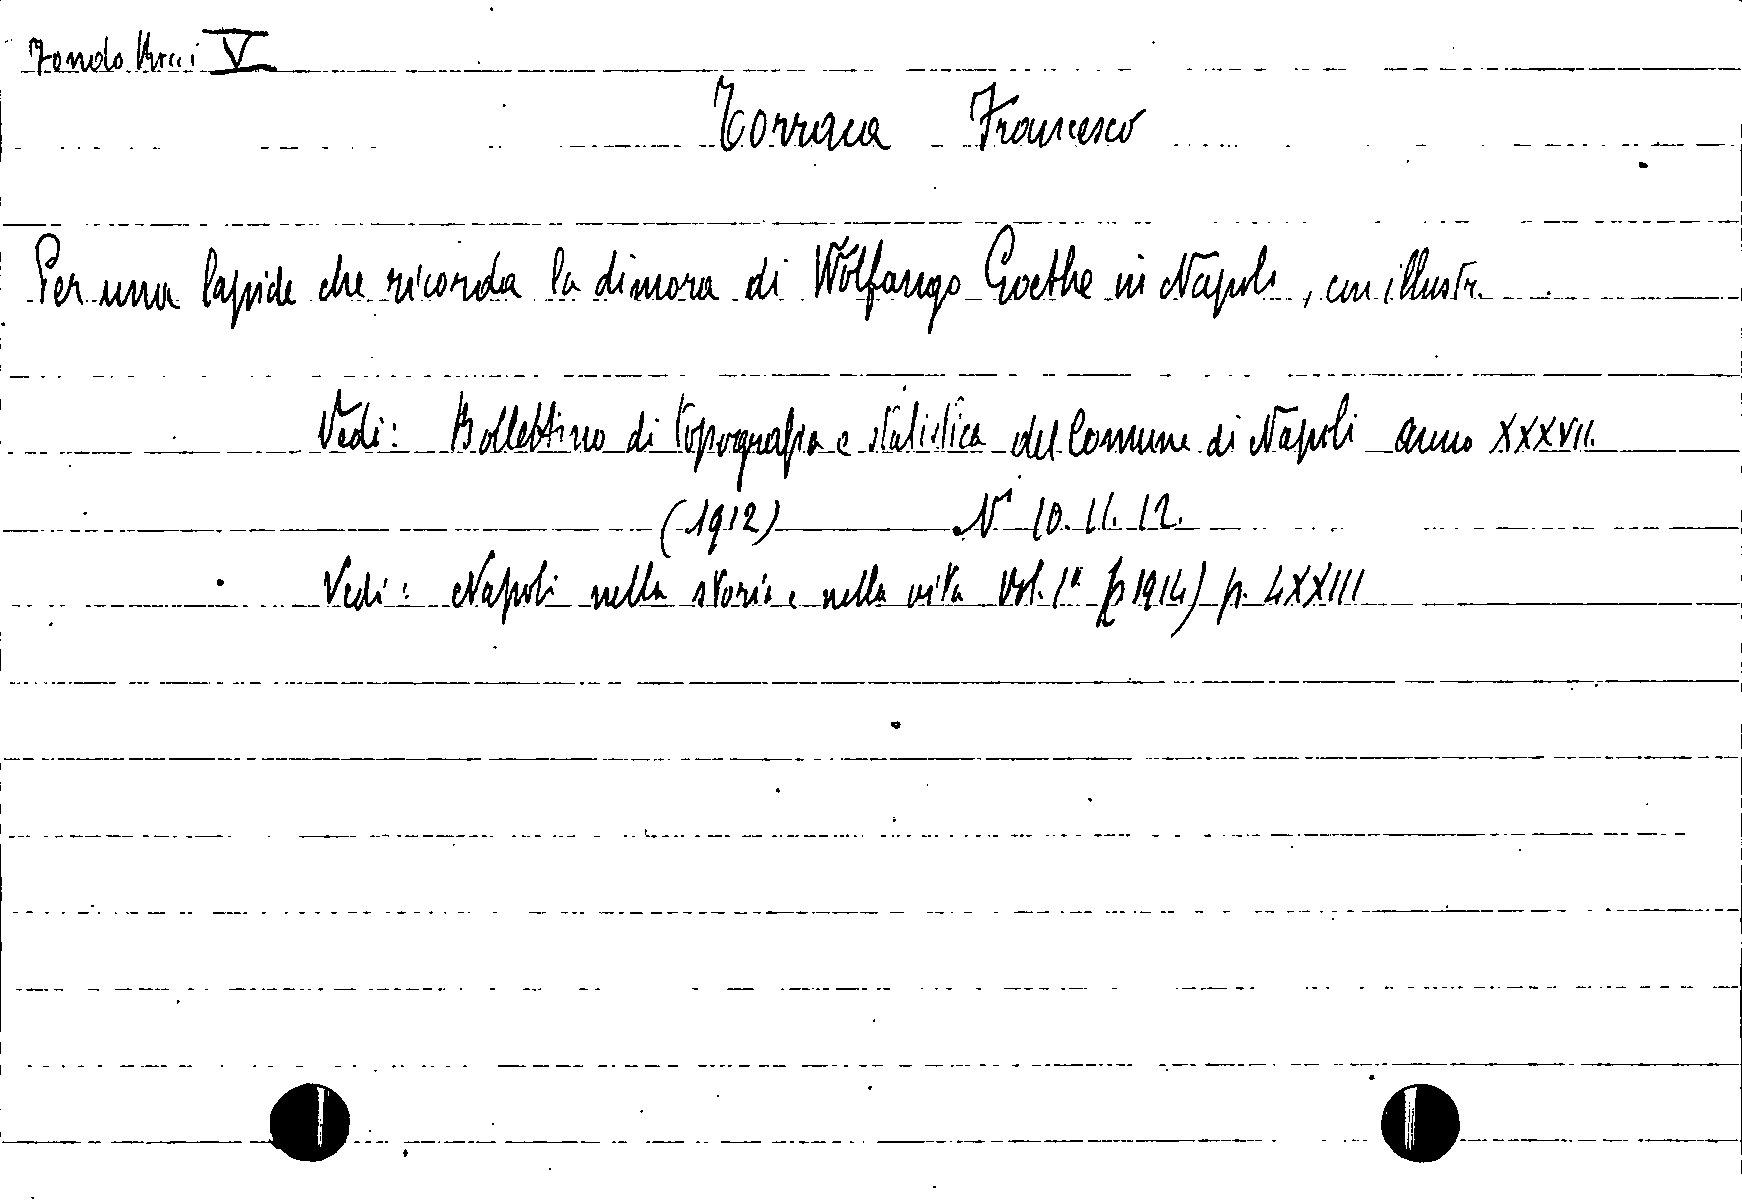 Fondo V
Torraca Francesco
Per una lapide che ricorda la dimora di Wolfango Goethe in Napoli, con illustr.
Vedi: Bollettino di topografia e statistica del Comune di Napoli anno XXXVII.
(1912) N° 10. 11. 12.
Vedi: Napoli nella storia e nella vita Vol. 1° 1914) p. LXXIII